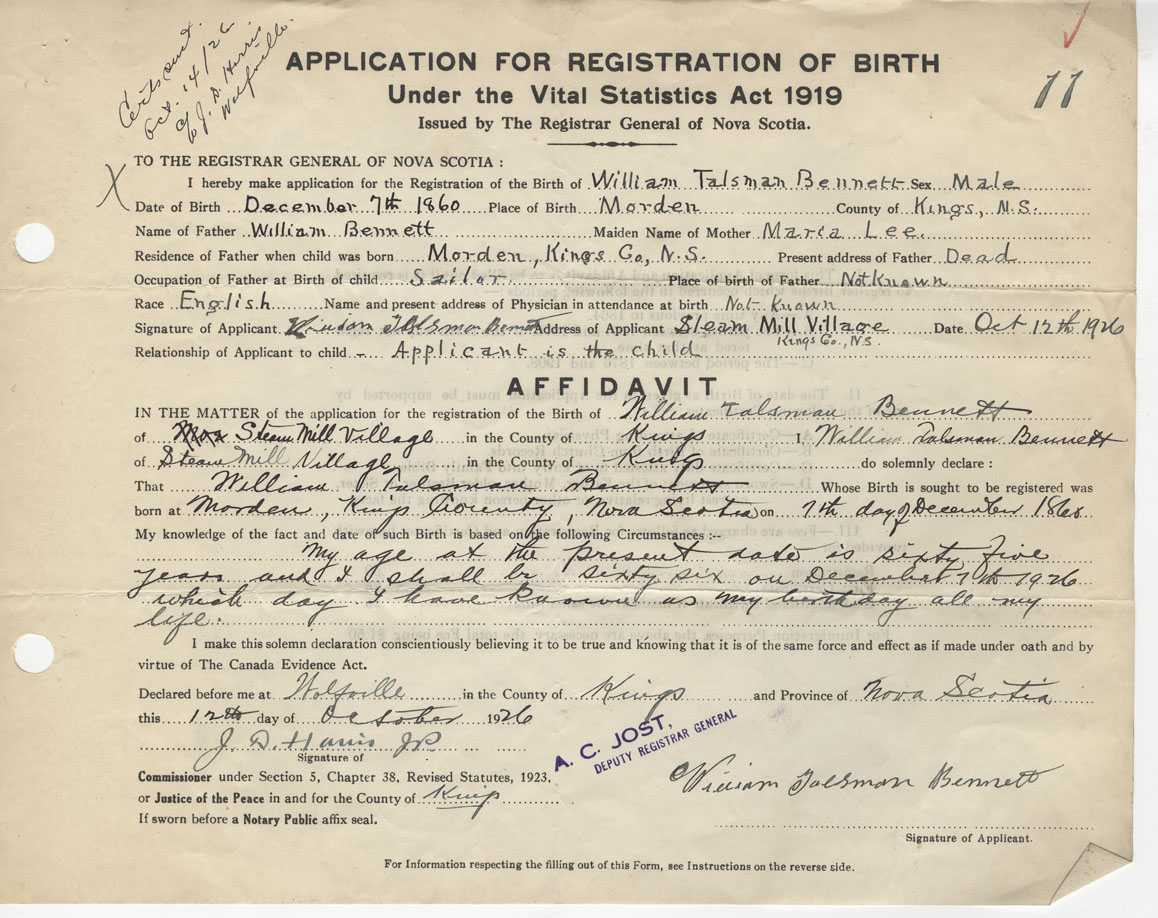 Cert sent.
Oct. 14/26
c/o J. D. Harris
Wolfville.
11
APPLICATION FOR REGISTRATION OF BIRTH
Under the Vital Statistics Act 1919
Issued by The Registrar General of Nova Scotia.
X
TO THE REGISTRAR GENERAL OF NOVA SCOTIA :
I hereby make application for the Registration of the Birth of William Talsman Bennett Sex Male
Date of Birth December 7th 1860 Place of Birth Morden County of Kings, N.S.
Name of Father William Bennett Maiden Name of Mother Maria Lee.
Residence of Father when child was born Morden, Kings Co, N.S. Present address of Father Dead
Occupation of Father at Birth of child Sailor Place of birth of Father Not Known
Race English Name and present address of Physician in attendance at birth Not Known
Signature of Applicant William Talsman Bennett Address of Applicant Steam Mill Village Date Oct 12th 1926
Kings Co., N.S.
Relationship of Applicant to child - Applicant is the child
AFFIDAVIT
IN THE MATTER of the application for the registration of the Birth of William Talsman Bennett
of Steam Mill Village in the County of Kings I, William Talsman Bennett
of Steam Mill Village in the County of Kings do solemnly declare :
That William Talsman Bennett Whose Birth is sought to be registered was
born at Morden, Kings County, Nova Scotia on 7th day of December 1860
My knowledge of the fact and date of such Birth is based on the following Circumstances :--
My age at the present date is sixty five
years and I shall be sixty six on December 7th 1926
which day I have known as my birthday all my
life.
I make this solemn declaration conscientiously believing it to be true and knowing that it is of the same force and effect as if made under oath and by
virtue of The Canada Evidence Act.
Declared before me at Wolfville in the County of Kings and Province of Nova Scotia
this 12th day of October 1926
J. D. Harris JP
Signature of
A. C. JOST,
DEPUTY REGISTRAR GENERAL
Commissioner under Section 5, Chapter 38, Revised Statutes, 1923,
or Justice of the Peace in and for the County of Kings
If sworn before a Notary Public affix seal.
William Talsman Bennett
Signature of Applicant.
For Information respecting the filling out of this Form, see Instructions on the reverse side.